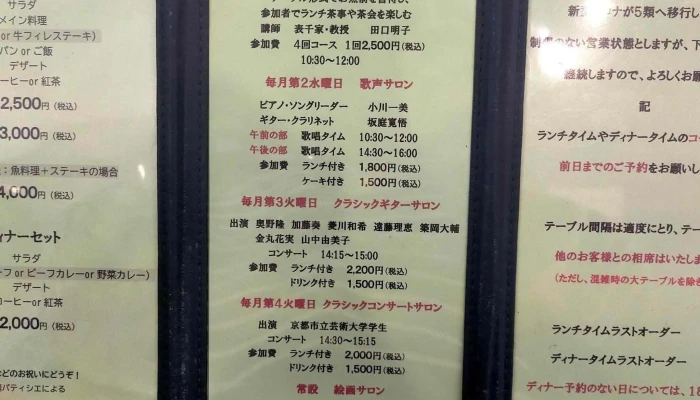 サラダ
メイン料理
or 牛フィレステーキ)
パン or ご飯
デザート
コーヒーor 紅茶
2,500円(税込)
3,000円(税込)
:魚料理+ステーキの場合
4,000円(税込)
ィナーセット
サラダ
ーフ or ビーフカレーor 野菜カレー)
デザート
コーヒーor 紅茶
2,000円(税込)
などのお祝いにどうぞ!
パティシエによる
参加者でランチ茶事や茶会を楽しむ
講師 表千家・教授 田口明子
参加費 4回コース 1回2,500円(税込)
10:30~12:00
毎月第2水曜日 歌声サロン
ピアノ・ソングリーダー 小川一美
ギター・クラリネット 坂庭寛悟
午前の部 歌唱タイム 10:30~12:00
午後の部 歌唱タイム 14:30~16:00
参加費 ランチ付き 1,800円(税込)
ケーキ付き 1,500円(税込)
毎月第3火曜日 クラシックギターサロン
出演 奥野隆 加藤奏 菱川和希 遠藤理恵 築岡大輔
金丸花実 山中由美子
コンサート 14:15~15:00
参加費 ランチ付き 2,200円(税込)
ドリンク付き 1,500円(税込)
毎月第4火曜日 クラシックコンサートサロン
出演 京都市立芸術大学学生
コンサート 14:30~15:15
参加費 ランチ付き 2,000円(税込)
ドリンク付き 1,500円(税込)
常設 絵画サロン
新型コロナが5類へ移行し
制限のない営業状態としますが、下
継続しますので、よろしくお願
記
ランチタイムやディナータイムのコー
前日までのご予約をお願いし
テーブル間隔は適度にとり、テー
他のお客様との相席はいたしま
(ただし、混雑時の大テーブルを除き
ランチタイムラストオーダー
ディナータイムラストオーダー
ディナー予約のない日については、18